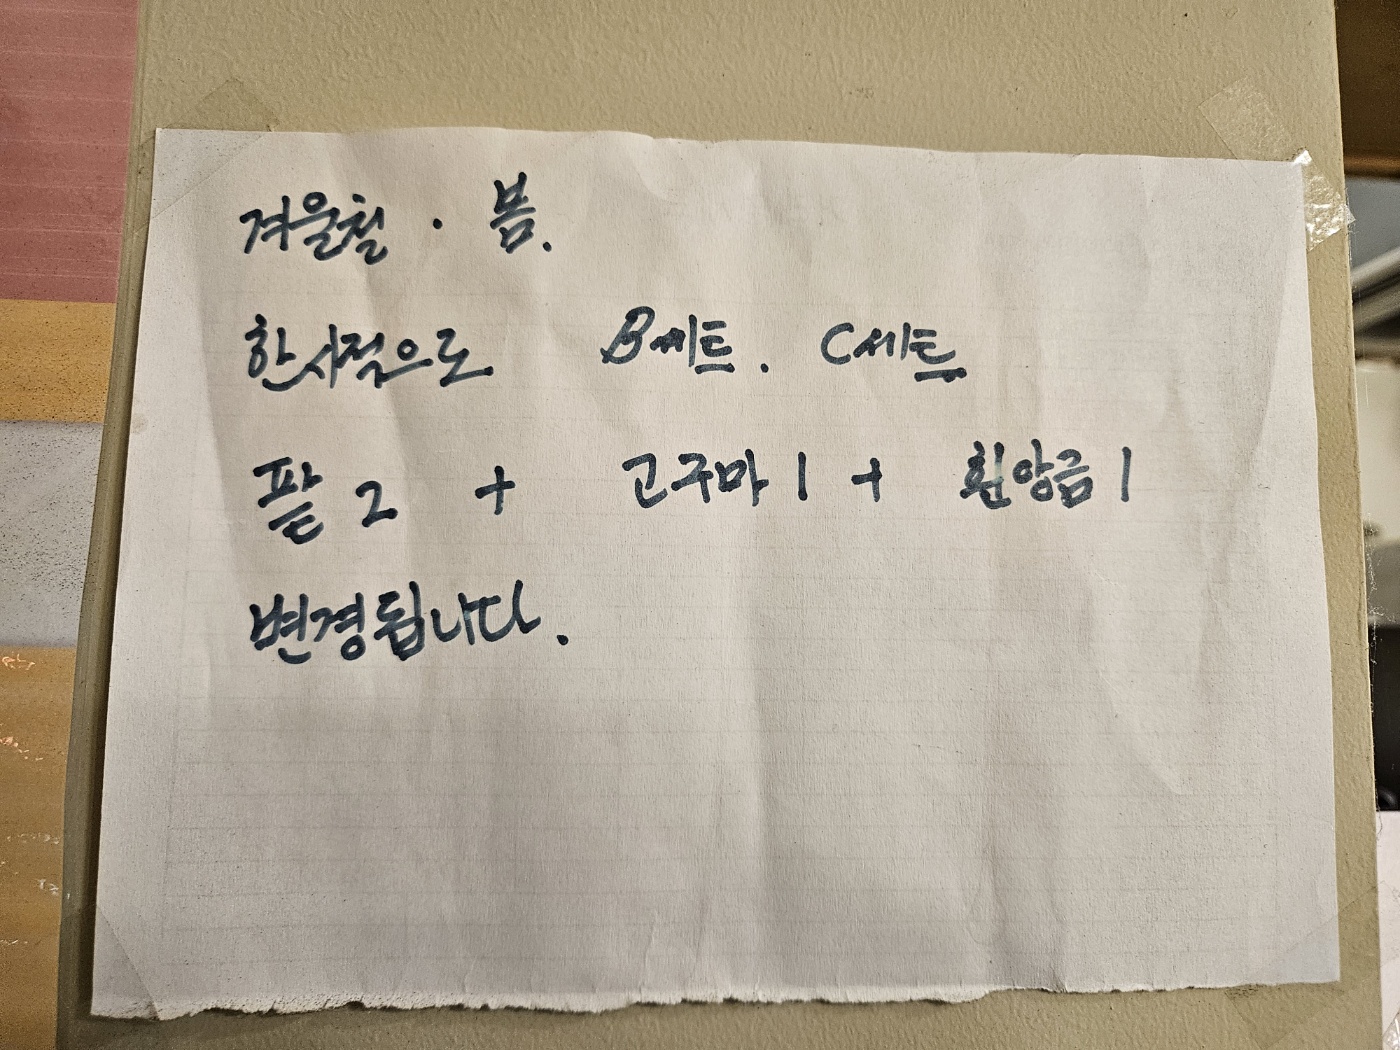 겨울철 · 봄.
한시적으로 B세트. C세트
팥 2 + 고구마 1 + 흰앙금 1
변경됩니다.